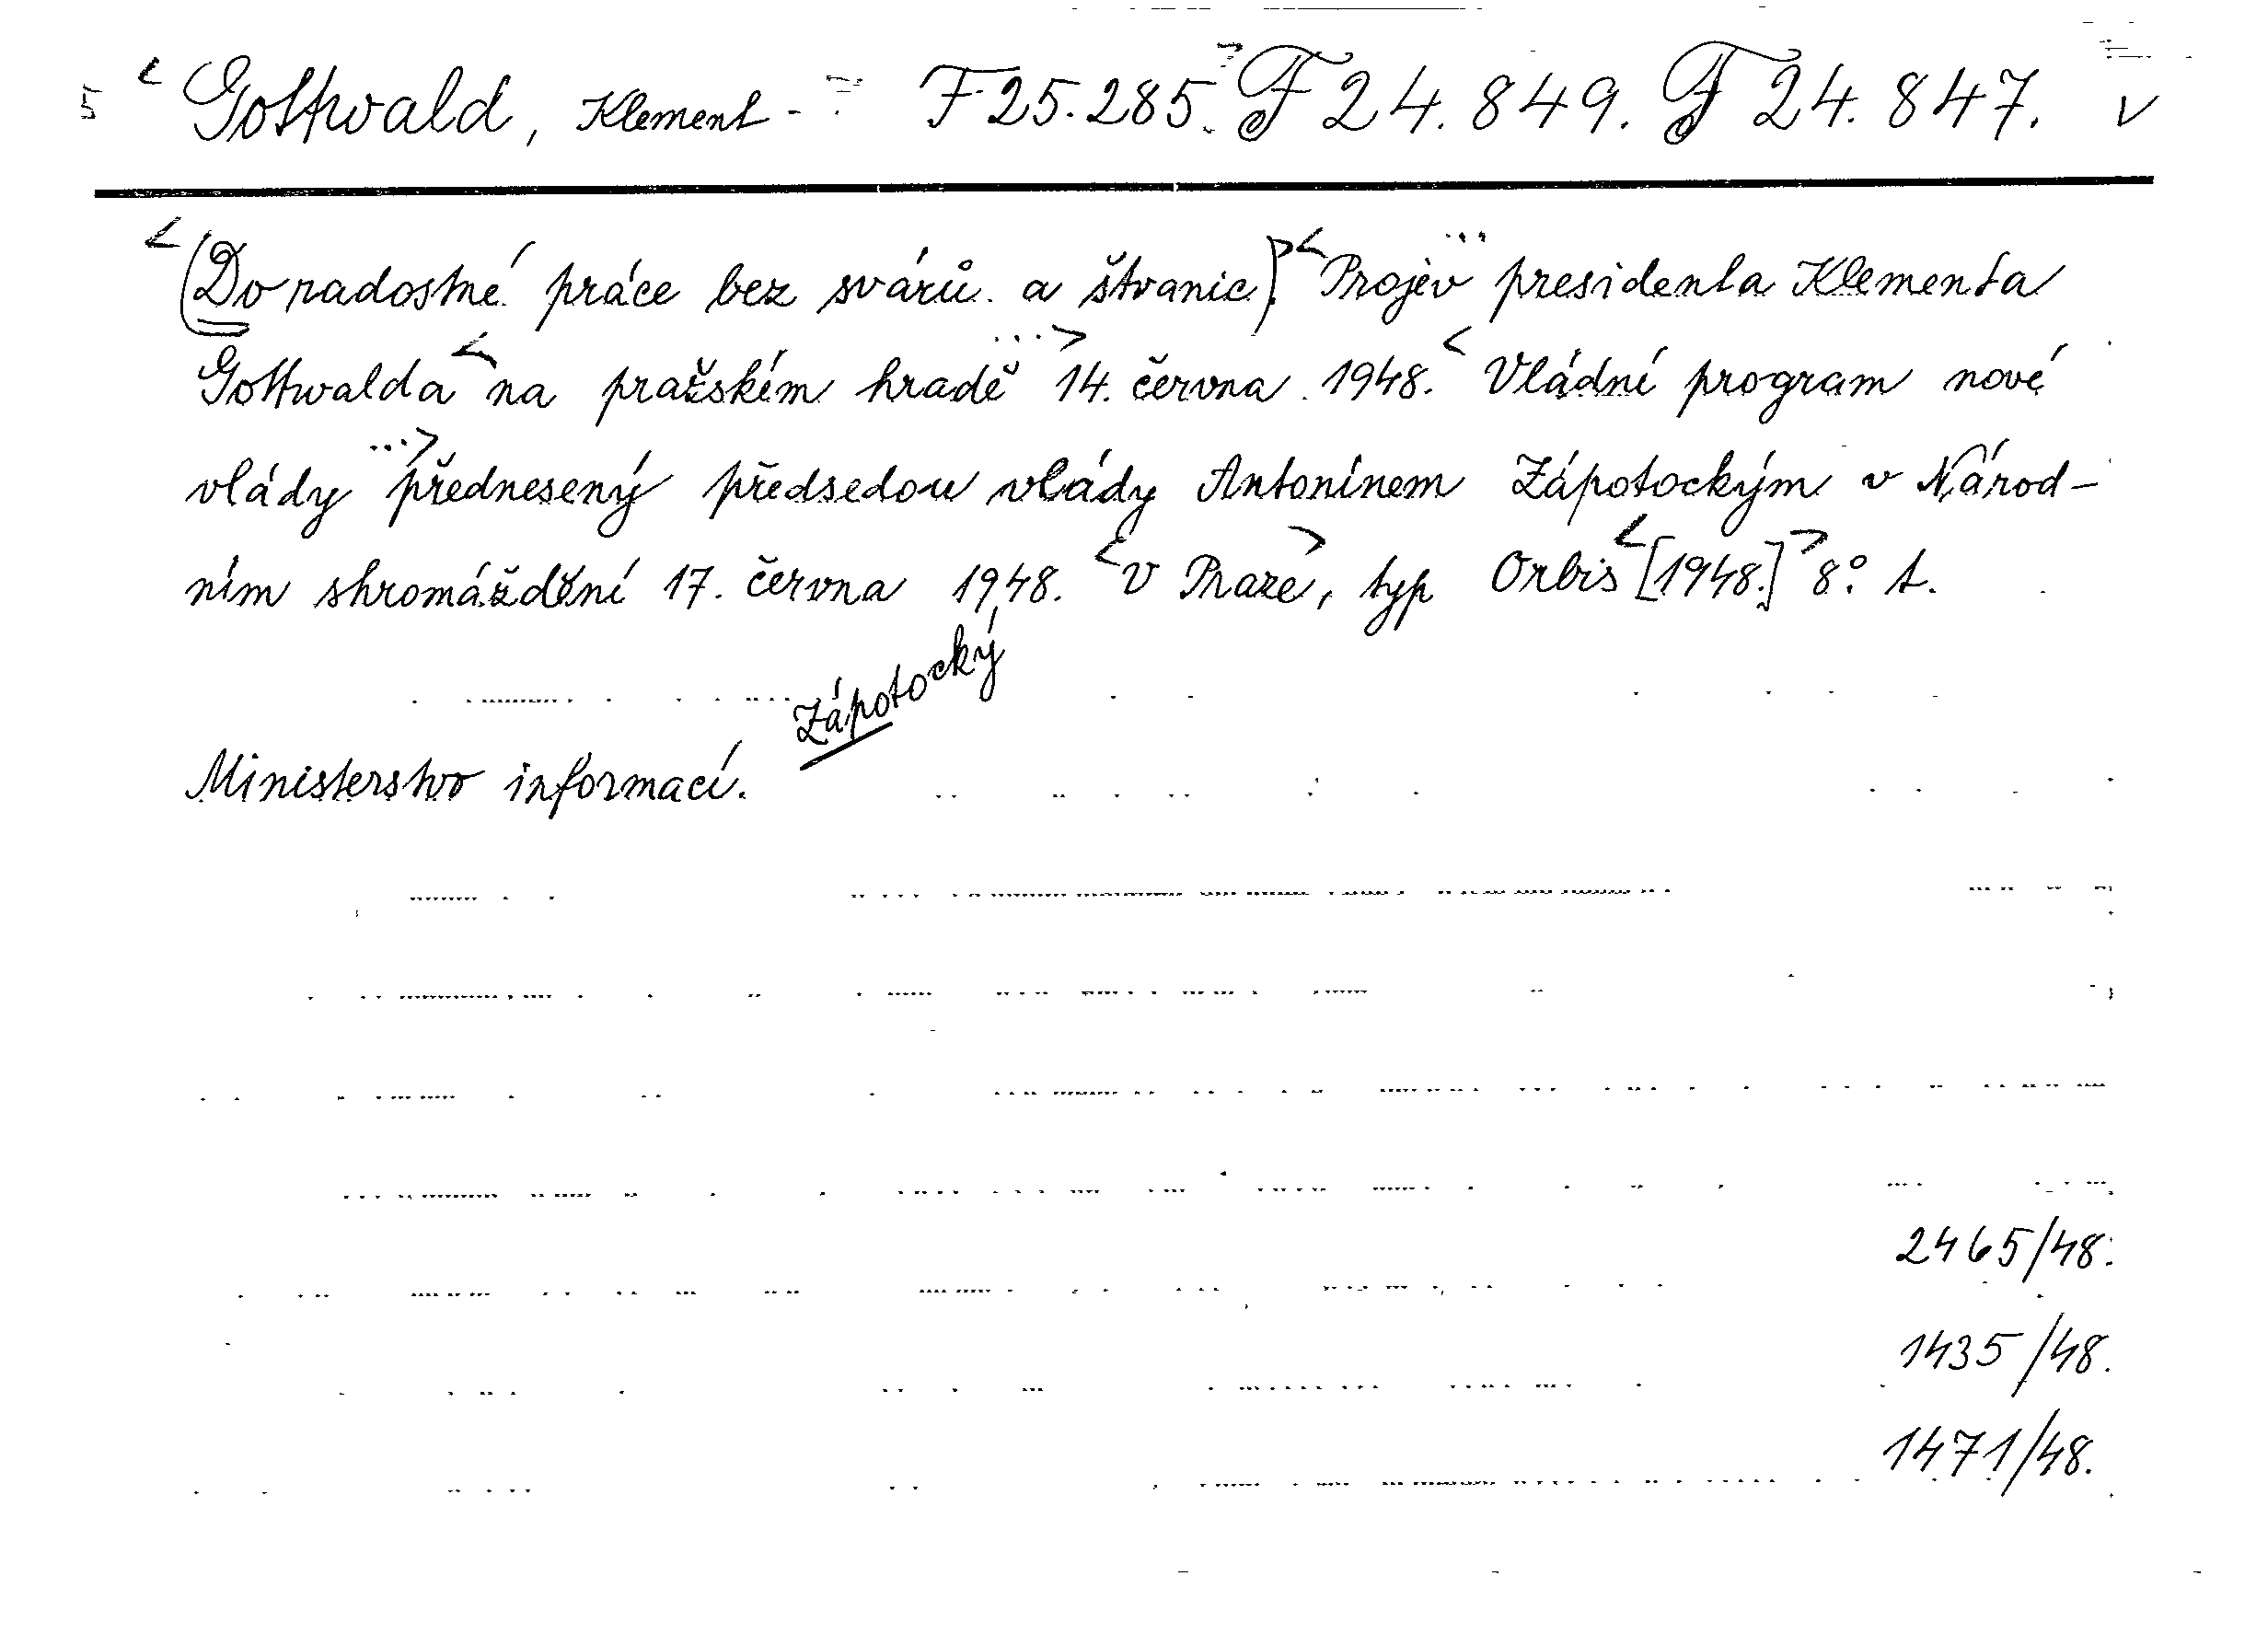 Gottwald, Klement - F 25.285. F 24.849. F 24.847. v
(Do radostné práce bez svárů a štvanic). Projev presidenta Klementa
Gottwalda na pražském hradě 14. června 1948. Vládní program nové
vlády přednesený předsedou vlády Antonínem Zápotockým v Národ-
ním shromáždění 17. června 1948. V Praze, typ Orbis [1948.] 8° t.
Zápotocký
Ministerstvo informací.
2465/48.
1435/48.
1471/48.